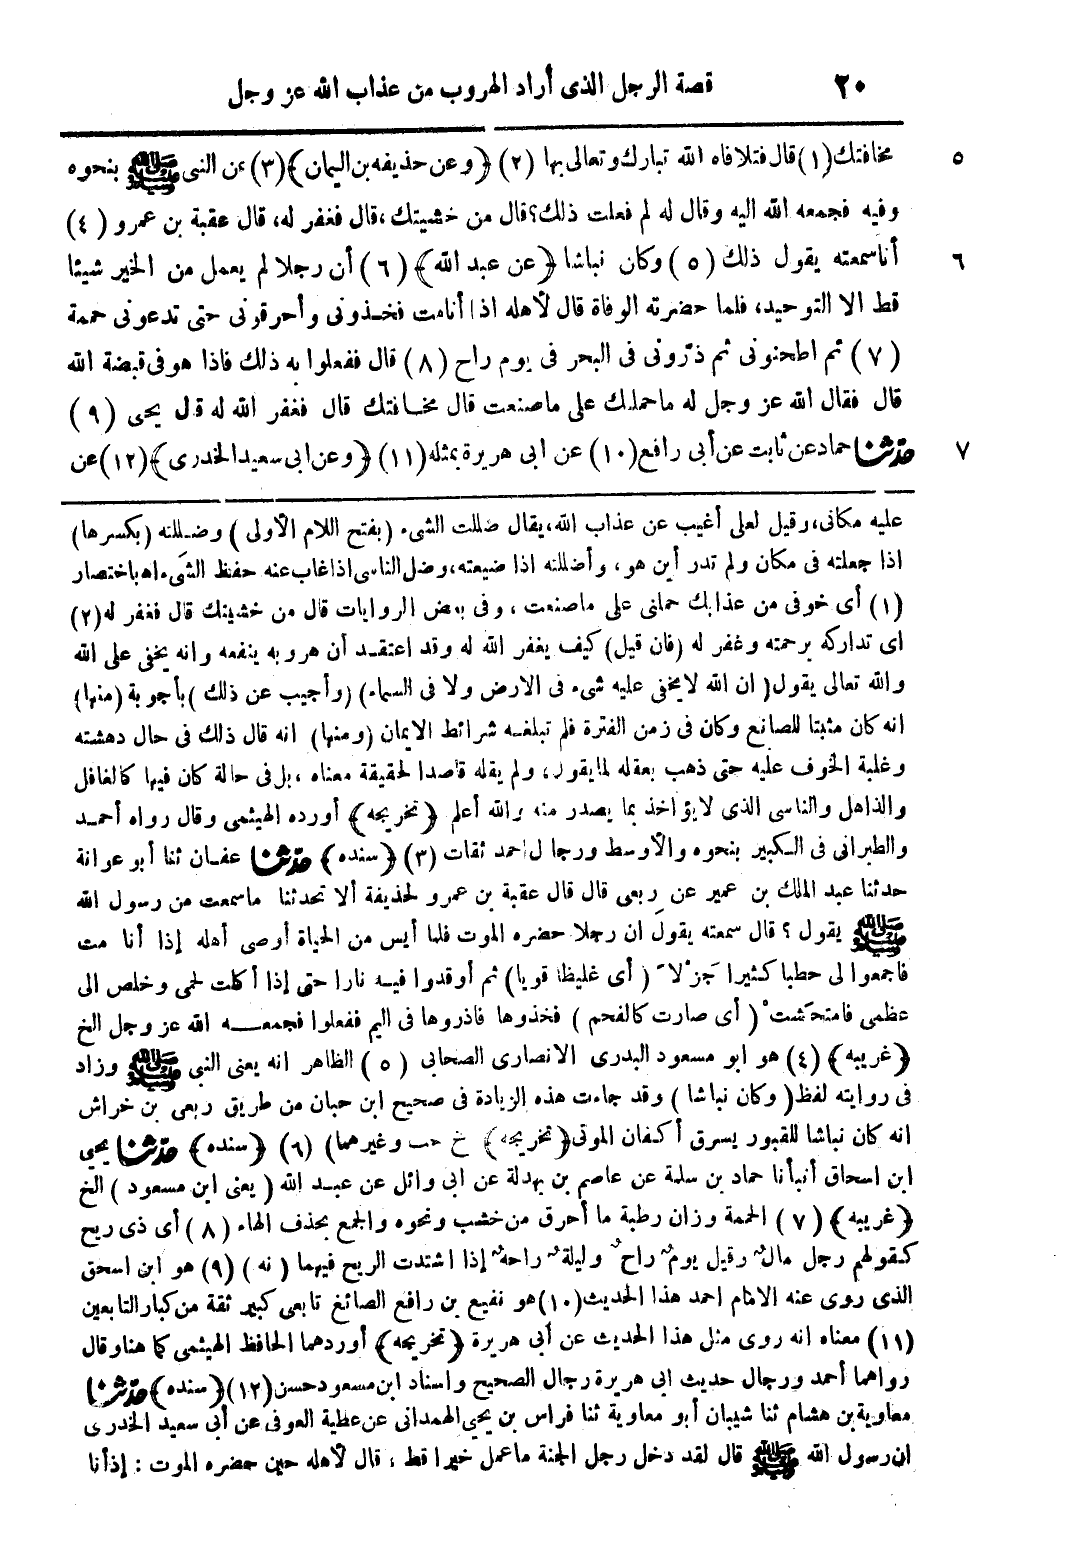 ٢٠ قصة الرجل الذى أراد الهروب من عذاب الله عز وجل
٥ مخافتك (١) قال فتلافاه الله تبارك وتعالى بها (٢) ﴿وعن حذيفه بن اليمان﴾ (٣) عن النبى ﷺ بنحوه
وفيه فجمعه الله اليه وقال له لم فعلت ذلك؟ قال من خشيتك، قال فغفر له، قال عقبة بن عمرو (٤)
٦ أنا سمعته يقول ذلك (٥) وكان نباشا ﴿عن عبد الله﴾ (٦) أن رجلا لم يعمل من الخير شيئا
قط الا التوحيد، فلما حضرته الوفاة قال لأهله اذا أنامت فخذونى وأحرقونى حتى تدعونى حممة
(٧) ثم اطحنونى ثم ذرّونى فى البحر فى يوم راح (٨) قال ففعلوا به ذلك فاذا هو فى قبضة الله
قال فقال الله عز وجل له ماحملك على ماصنعت قال مخافتك قال فغفر الله له قال يحيى (٩)
٧ حدّثنا حماد عن ثابت عن أبى رافع (١٠) عن ابى هريرة بمثله (١١) ﴿وعن ابى سعيد الخدرى﴾ (١٢) عن
عليه مكانى، وقيل لعلى أغيب عن عذاب الله، يقال ضللت الشىء (بفتح اللام الأولى) وضللته (بكسرها)
اذا جعلته فى مكان ولم تدر أين هو، وأضللته اذا ضيعته، وضل الناسى اذا غاب عنه حفظ الشىء اه باختصار
(١) أى خوفى من عذابك حملنى على ماصنعت، وفى بعض الروايات قال من خشيتك قال فغفر له (٢)
اى تداركه برحمته وغفر له (فان قيل) كيف يغفر الله له وقد اعتقد أن هروبه ينفعه وانه يخفى على الله
والله تعالى يقول (ان الله لا يخفى عليه شىء فى الارض ولا فى السماء) (وأجيب عن ذلك) بأجوبة (منها)
انه كان مثبتا للصانع وكان فى زمن الفترة فلم تبلغه شرائط الايمان (ومنها) انه قال ذلك فى حال دهشته
وغلبة الخوف عليه حتى ذهب بعقله لما يقول، ولم يقله قاصدا لحقيقة معناه، بل فى حالة كان فيها كالغافل
والذاهل والناسى الذى لا يؤاخذ بما يصدر منه والله أعلم ﴿تخريجه﴾ أورده الهيثمى وقال رواه أحمد
والطبرانى فى الكبير بنحوه والأوسط ورجال احمد ثقات (٣) ﴿سنده﴾ حدّثنا عفان ثنا أبو عوانة
حدثنا عبد الملك بن عمير عن ربعى قال قال عقبة بن عمرو لحذيفة ألا تحدثنا ماسمعت من رسول الله
ﷺ يقول؟ قال سمعته يقول ان رجلا حضره الموت فلما أيس من الحياة أوصى أهله إذا أنا مت
فاجمعوا لى حطبا كثيرا جَزْلا (أى غليظا قويا) ثم أوقدوا فيه نارا حتى إذا أكلت لحمى وخلص الى
عظمى فامتحَشت (أى صارت كالفحم) فخذوها فاذروها فى اليم ففعلوا فجمعه الله عز وجل الخ
﴿غريبه﴾ (٤) هو ابو مسعود البدرى الانصارى الصحابى (٥) الظاهر انه يعنى النبى ﷺ وزاد
فى روايته لفظ (وكان نباشا) وقد جاءت هذه الزيادة فى صحيح ابن حبان من طريق ربعى بن خراش
انه كان نباشا للقبور يسرق أكفان الموتى ﴿تخريجه﴾ خ حب وغيرهما) (٦) ﴿سنده﴾ حدّثنا يحيى
ابن اسحاق أنبأنا حماد بن سلمة عن عاصم بن بهدلة عن ابى وائل عن عبد الله (يعنى ابن مسعود) الخ
﴿غريبه﴾ (٧) الحممة وزان رطبة ما أحرق من خشب ونحوه والجمع بحذف الهاء (٨) أى ذى ريح
كقولهم رجل مالٌ وقيل يومٌ راحٌ وليلةٌ راحةٌ إذا اشتدت الريح فيهما (نه) (٩) هو ابن اسحق
الذى روى عنه الامام احمد هذا الحديث (١٠) هو نفيع بن رافع الصائغ تابعى كبير ثقة من كبار التابعين
(١١) معناه انه روى مثل هذا الحديث عن أبى هريرة ﴿تخريجه﴾ أوردهما الحافظ الهيثمى كما هنا وقال
رواهما أحمد ورجال حديث ابى هريرة رجال الصحيح واسناد ابن مسعود حسن (١٢) ﴿سنده﴾ حدّثنا
معاوية بن هشام ثنا شيبان أبو معاوية ثنا فراس بن يحيى الهمدانى عن عطية العوفى عن أبى سعيد الخدرى
ان رسول الله ﷺ قال لقد دخل رجل الجنة ماعمل خيرا قط، قال لأهله حين حضره الموت: إذا أنا